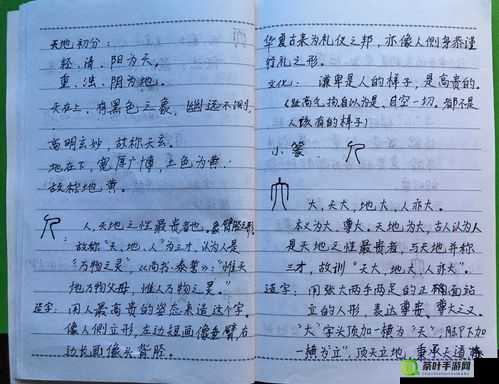 天地初分：
轻、清、阳为天，
重、浊、阴为地。
天在上、有黑色之象，幽远不测，
高明玄妙，故称天玄。
地在下，宽厚广博，土色为黄，
故称地黄。
人，天地之性最贵者也。象臂胫之形。
故称"天、地、人"为三才，认为人是
"万物之灵"，《尚书·泰誓》："惟天
地万物父母，惟人万物之灵。"
造字：用人最高贵的姿态来造这个字。
像人侧立形，左边短画像垂臂，右
边长画像头背胫。
华夏古来为礼仪之邦，亦像人侧身恭谨
行礼之形。
文化：谦卑是人的样子，是高贵的。
自以为是、目空一切、都不是
人该有的样子)
小篆
大，天大，地大，人亦大。
本义为大、尊大。天地为大，古人认为人
是天地之性最贵者，与天地并称
三才，故训"天大，地大，人亦大"。
造字：用张大两手两足的正面站
立的人形，表达尊贵、尊大之义。
"大"字头顶加一横为"天"，脚下加
一横为"立"，顶天立地，秉承天道
茶叶手游网